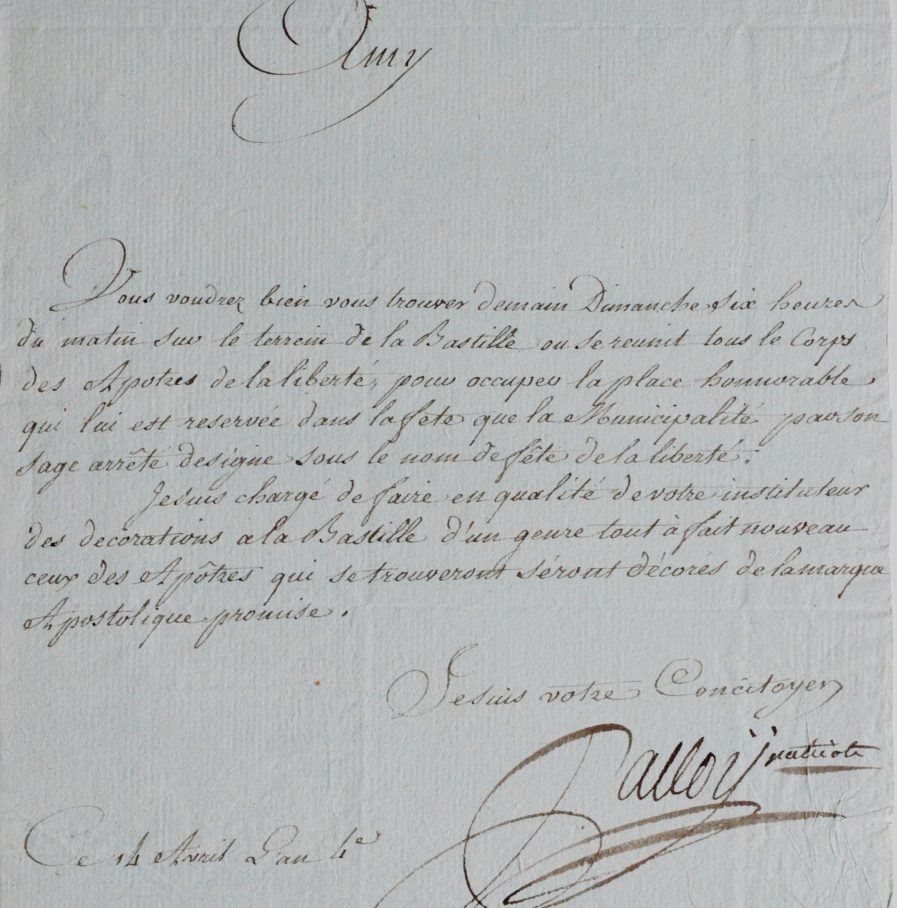 Amy
Vous voudrez bien vous trouver demain Dimanche six heures
du matin sur le terrein de la Bastille ou se reunit tous le Corps
des Apotres de la liberté, pour occuper la place honnorable
qui lui est reservée dans la fete que la Municipalité par son
sage arrête designe sous le nom de fête de la liberté.
Je suis chargé de faire en qualité de votre instituteur
des decorations a la Bastille d'un genre tout à fait nouveau
ceux des Apôtres qui se trouveront séront décorés de la marque
Apostolique promise.
Je suis votre Concitoyen
Palloy patriote
Ce 14 Avril L'an 4e